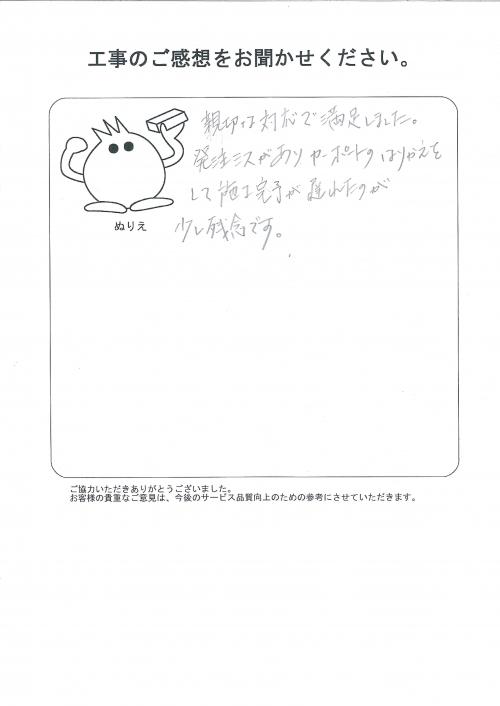 工事のご感想をお聞かせください。
親切な対応で満足しました。
発注ミスがありカーポートのはりかえを
して施工完了が遅れたのが
少し残念です。
ぬりえ
ご協力いただきありがとうございました。
お客様の貴重なご意見は、今後のサービス品質向上のための参考にさせていただきます。